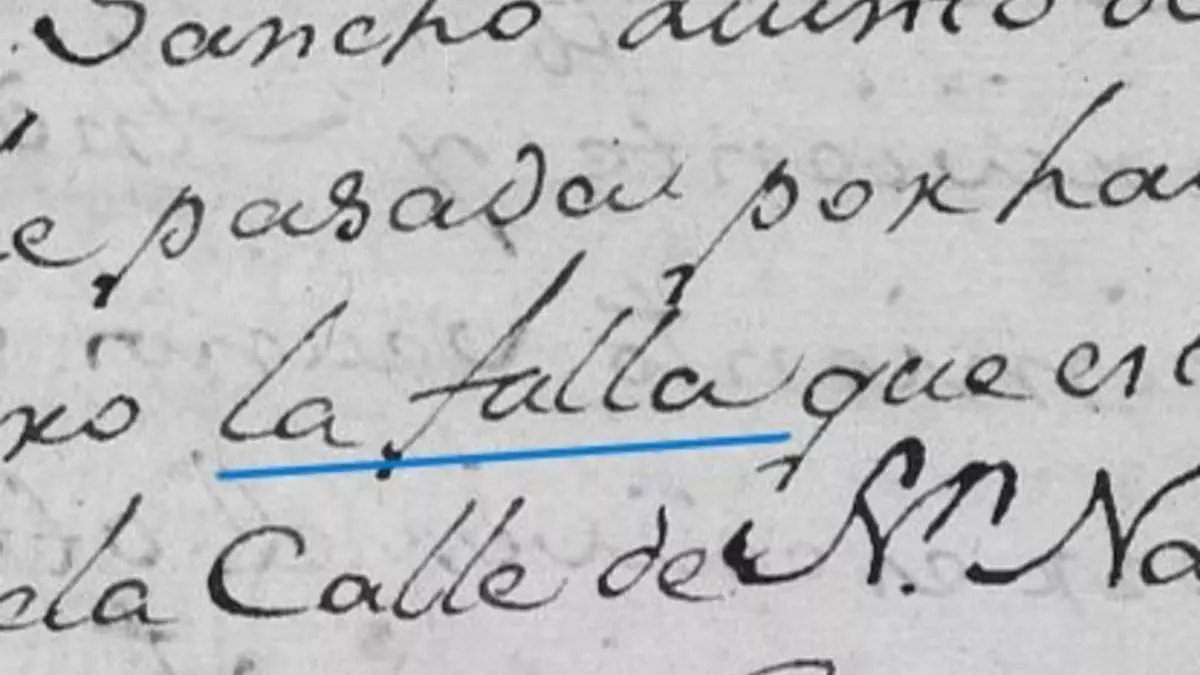 Sancho
e pasada por ha
xo la falla que est
ela Calle de Sn. Na